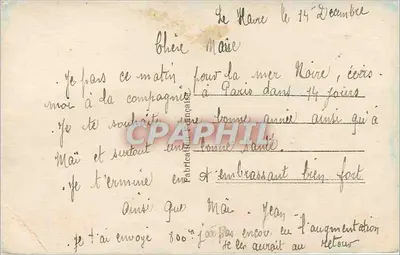 Le Havre le 14 Decembre
Chère Marie
. Je pars ce matin pour la mer Noire, écris-
moi à la compagnie à Paris dans 14 jours
. Je te souhaite bonne année ainsi qu'à
Maï et surtout une bonne santé.
. Je t'ermine en t'embrassant bien fort
ainsi que Maï. Jean
. Je t'ai envoyé 800 j'ai pas encor eu l'augmentation
au retour
Fabrication Française
CPAPHIL